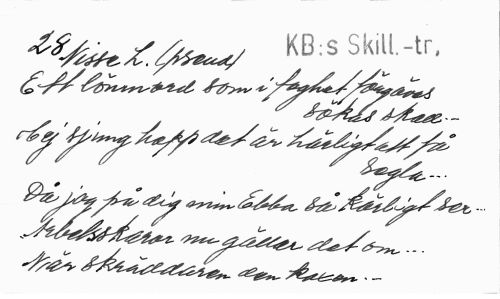 28
Nisse L. (pseud) KB:s Skill.-tr.
Ett lönnmord som i faghet förgäves
sökas skall.--
Hej sjung hopp det är härligt att få
segla--
Då jag på dig min Ebba så kärligt ser--
Arbetsskaror nu gäller det om...
När skräddaren den kaxen.--